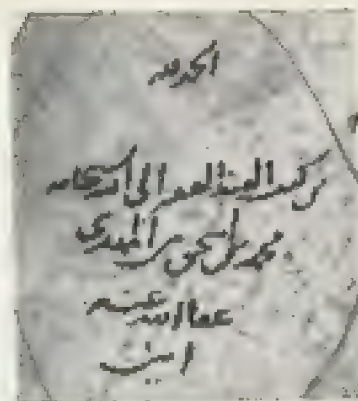 الحمد لله
من كتب العبد الفقير الى الله سبحانه
محمد بن اسحق بن المهدي
عفا الله عنه
امين